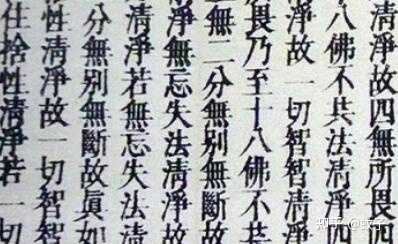 清淨故四無所畏四
八佛不共法清淨四
淨故一切智智清淨
畏乃至十八佛不共
無二分無別無斷故
淨無忘失法清淨故
清淨若無忘失法清
分無別無斷故眞如
性清淨故一切智智
住捨性清淨若一切
知乎